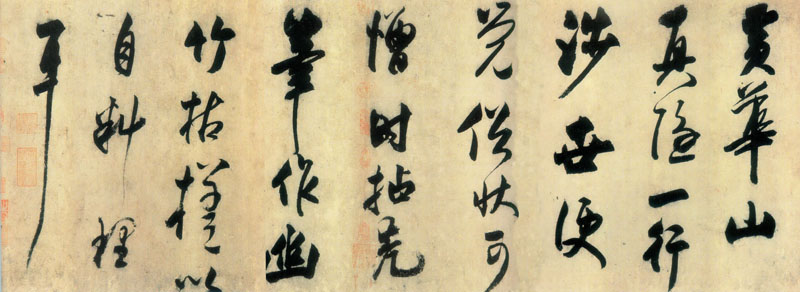 黄華山
真隱一行
涉世便
覺俗狀可
憎時拈秃
筆作幽
竹枯槎以
自料理
耳